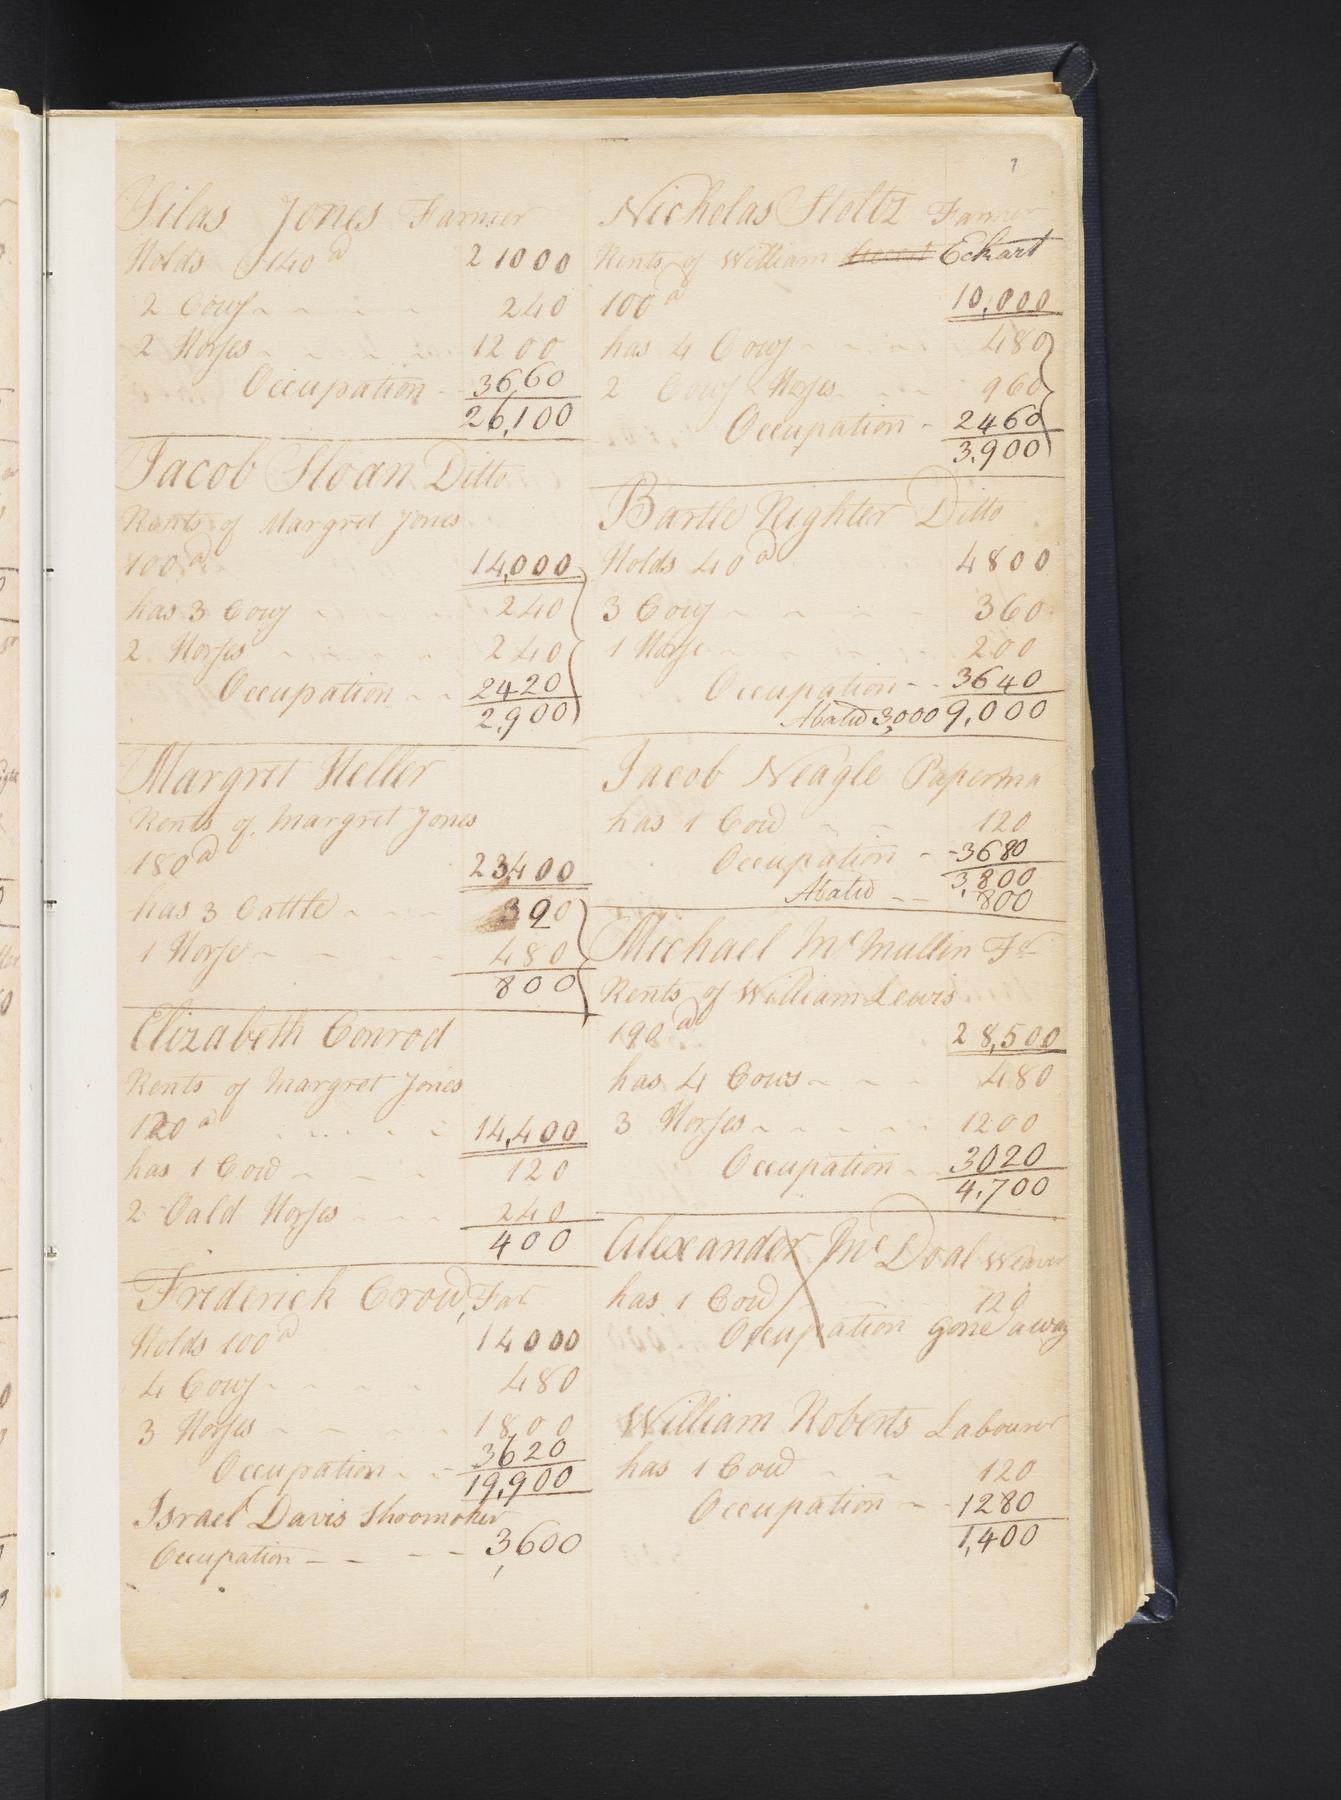 7
Silas Jones Farmer
Holds 140 a 21000
2 Cows - - - - 240
2 Horses - - - - 1200
Occupation - 3660
26,100
Jacob Sloan Ditto
Rents of Margret Jones
100 a 14,000
has 3 Cows - - - - 240
2 Horses - - - - 240
Occupation - - 2420
2,900
Margret Heller
Rents of Margret Jones
180 a 23400
has 3 Cattle - - - 320
1 Horse - - - - 480
800
Elizabeth Conrod
Rents of Margret Jones
120 a - - - - 14,400
has 1 Cow - - - 120
2 Oald Horses - - - 240
400
Frederick Crow, Far
Holds 100 a 14000
4 Cows - - - - 480
3 Horses - - - - 1800
Occupation - - 3620
19,900
Israel Davis Shoomaker
Occupation - - - - 3,600
Nicholas Stoltz Farmer
Rents of William Eckart
100 a 10,000
has 4 Cows - - - - 480
2 Cows Horses - - - 960
Occupation - 2460
3,900
Bartle Righter Ditto
Holds 40 a 4800
3 Cows - - - - 360
1 Horse - - - - 200
Occupation - - 3640
Abated 3,000 9,000
Jacob Neagle Paperma
has 1 Cow - - 120
Occupation - - 3680
3,800
Abated - - 800
Michael McMullin Fr
Rents of William Lewis
190 a 28,500
has 4 Cows - - - 480
3 Horses - - - - - 1200
Occupation - 3020
4,700
Alexander McDoal Weaver
has 1 Cow - - - 120
Occupation gone away
William Roberts Labourer
has 1 Cow - - 120
Occupation - - 1280
1,400